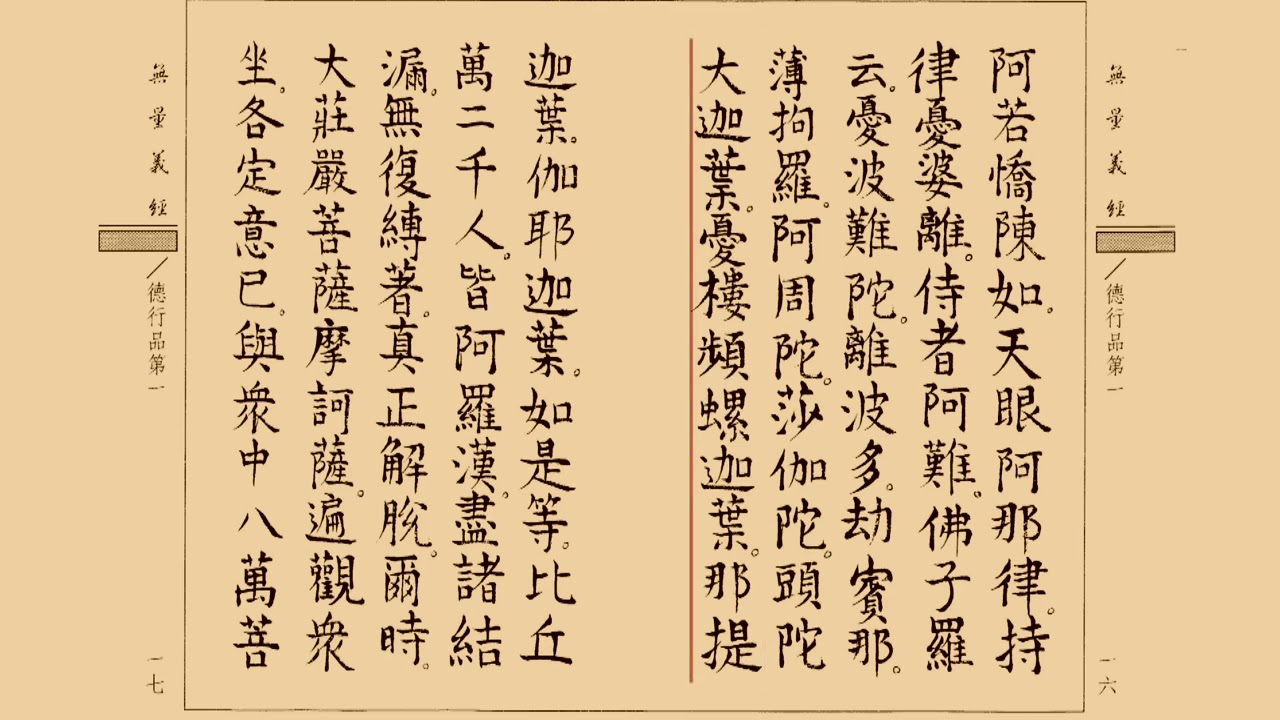 無量義經
德行品第一
一六
阿若憍陳如。天眼阿那律。持
律憂婆離。侍者阿難。佛子羅
云。憂波難陀。離波多。劫賓那。
薄拘羅。阿周陀。莎伽陀。頭陀
大迦葉。憂樓頻螺迦葉。那提
迦葉。伽耶迦葉。如是等。比丘
萬二千人。皆阿羅漢。盡諸結
漏。無復縛著。真正解脫。爾時。
大莊嚴菩薩摩訶薩。遍觀眾
坐。各定意已。與眾中八萬菩
無量義經
德行品第一
一七